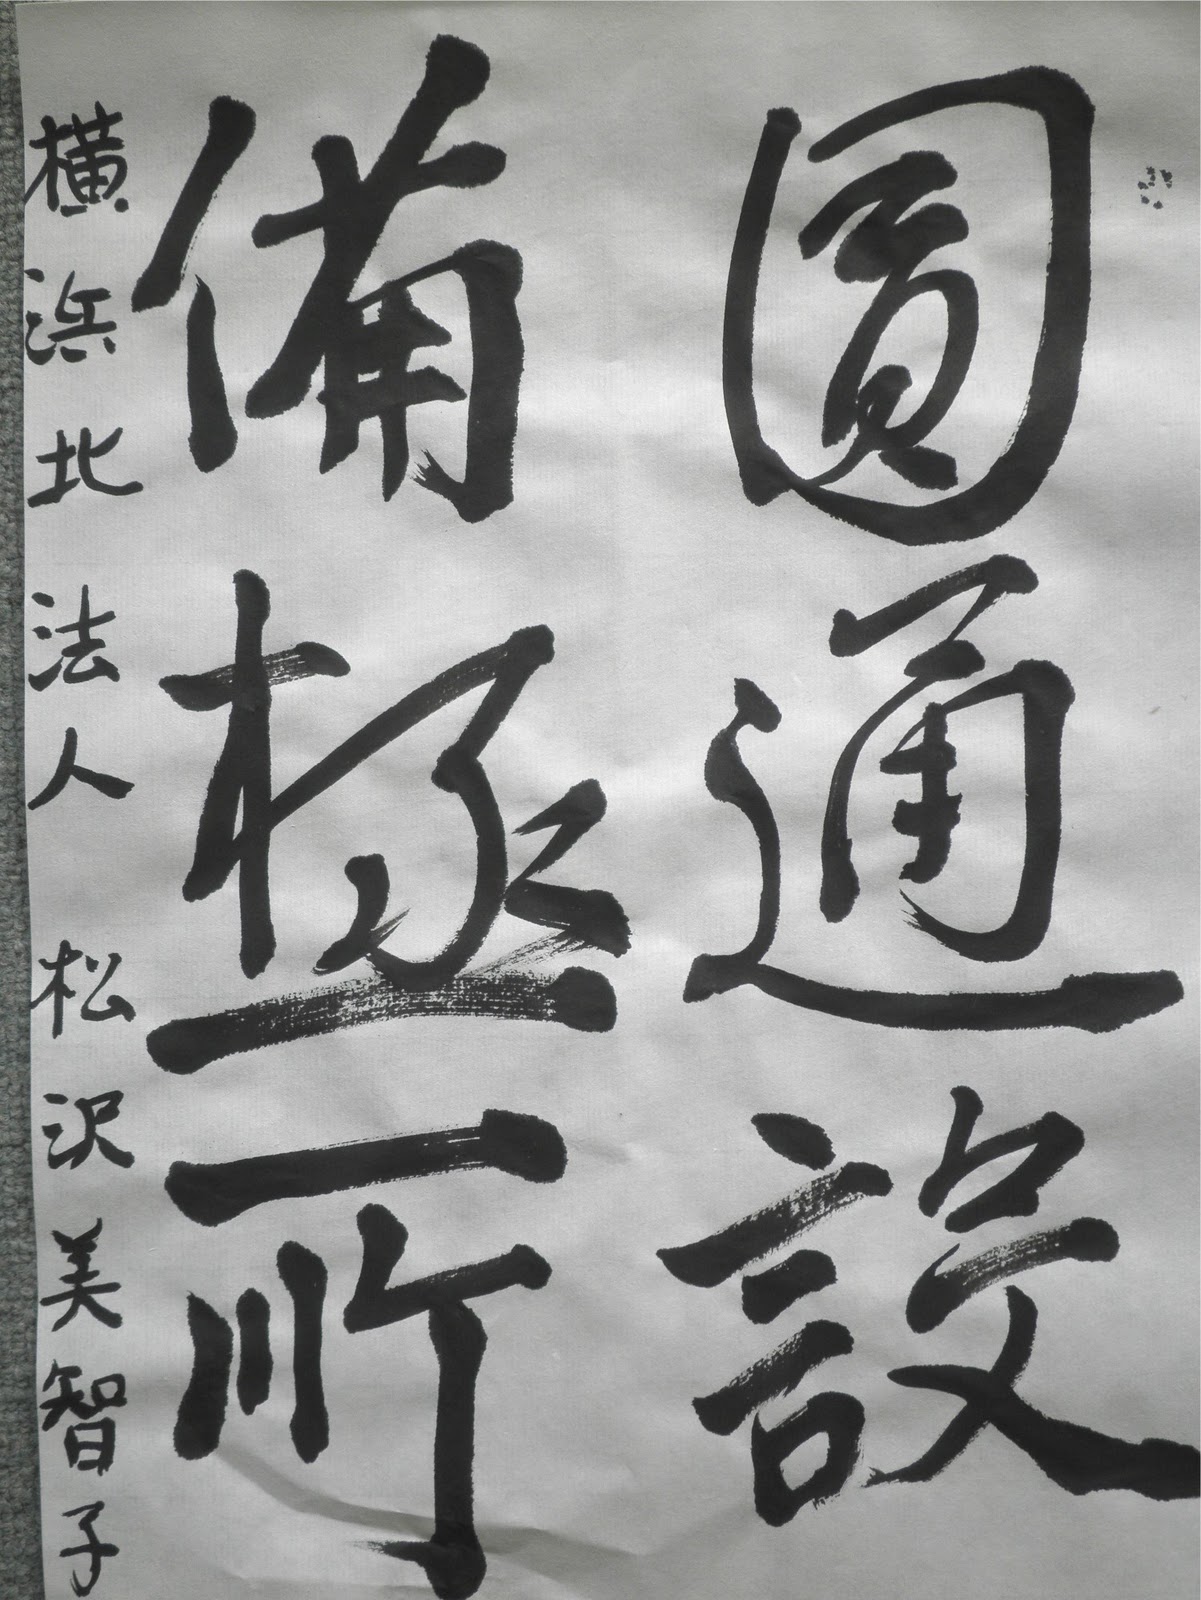 圓通設
備極所
横浜北法人 松沢美智子